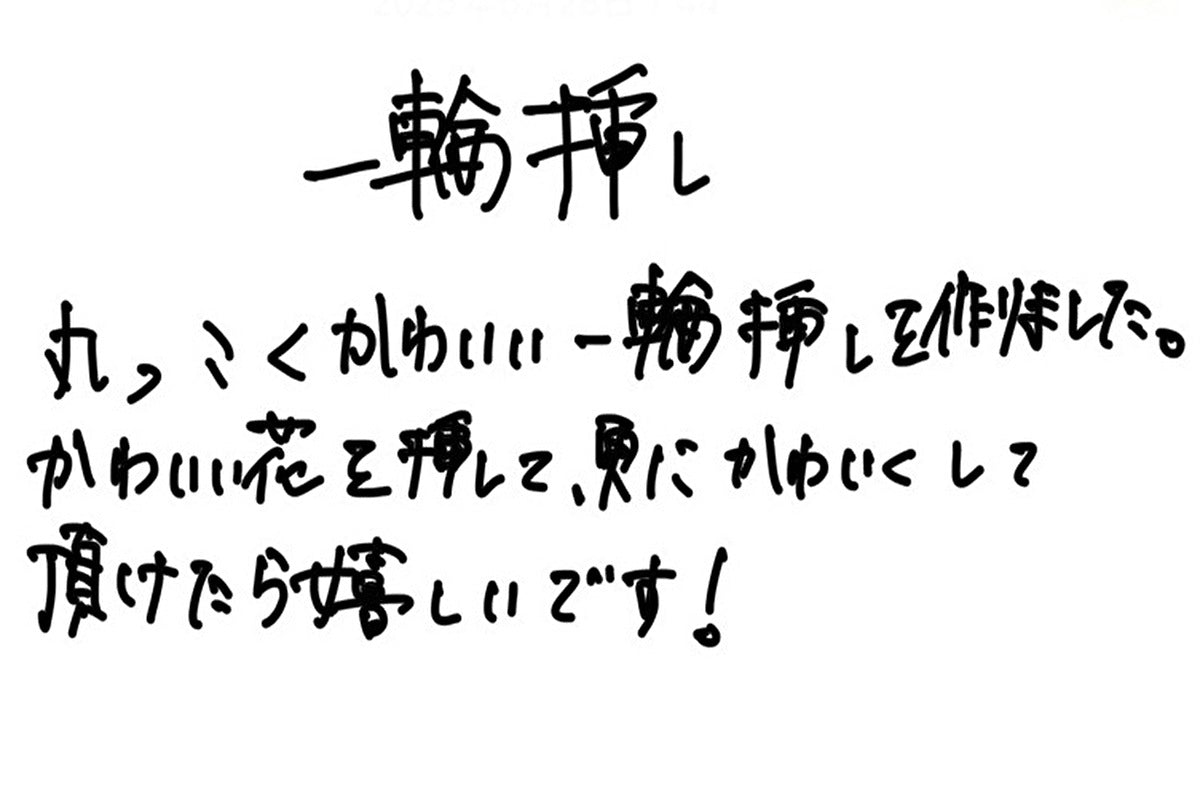 一輪挿し
丸っこくかわいい一輪挿しを作りました。
かわいい花を挿して、更にかわいくして
頂けたら嬉しいです!